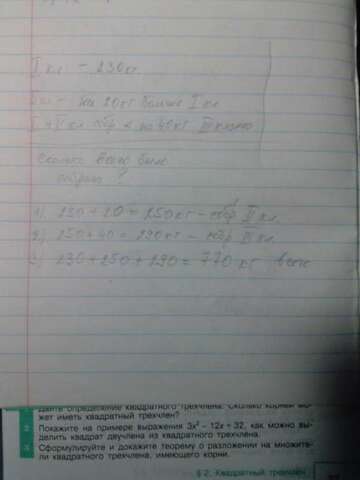 I кл - 230кг
II кл - на 20кг больше I кл
I и II кл собр < на 40кг III класса
Сколько всего было
собрано?
1) 230 + 20 = 250кг - собр II кл.
2) 250 + 40 = 290кг - собр III кл.
3) 230 + 250 + 290 = 770 кг всего
Дайте определение квадратного трёхчлена. Сколько корней мо-
жет иметь квадратный трёхчлен?
Покажите на примере выражения 3x² - 12x + 32, как можно вы-
делить квадрат двучлена из квадратного трёхчлена.
Сформулируйте и докажите теорему о разложении на множите-
ли квадратного трёхчлена, имеющего корни.
§ 2. Квадратный трёхчлен